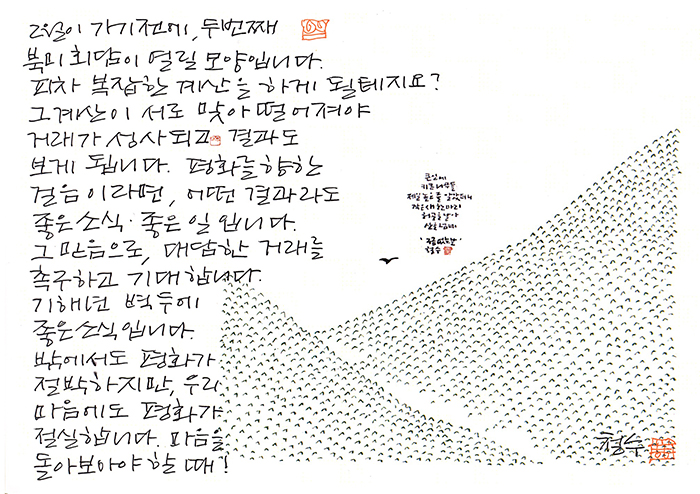 2월이 가기전에, 두번째
북미회담이 열릴 모양입니다.
피차 복잡한 계산을 하게 될테지요?
그계산이 서로 맞아떨어져야
거래가 성사되고 결과도
보게 됩니다. 평화를향한
걸음이라면, 어떤 결과라도
좋은소식·좋은 일입니다.
그 믿음으로, 대담한 거래를
촉구하고 기대합니다.
기해년 벽두에
좋은소식입니다.
밖에서도 평화가
절박하지만, 우리
마음에도 평화가
절실합니다. 마음을
돌아보아야할때!
큰산에
제일 높은
작은새한마리
허공을날아
철수
철수